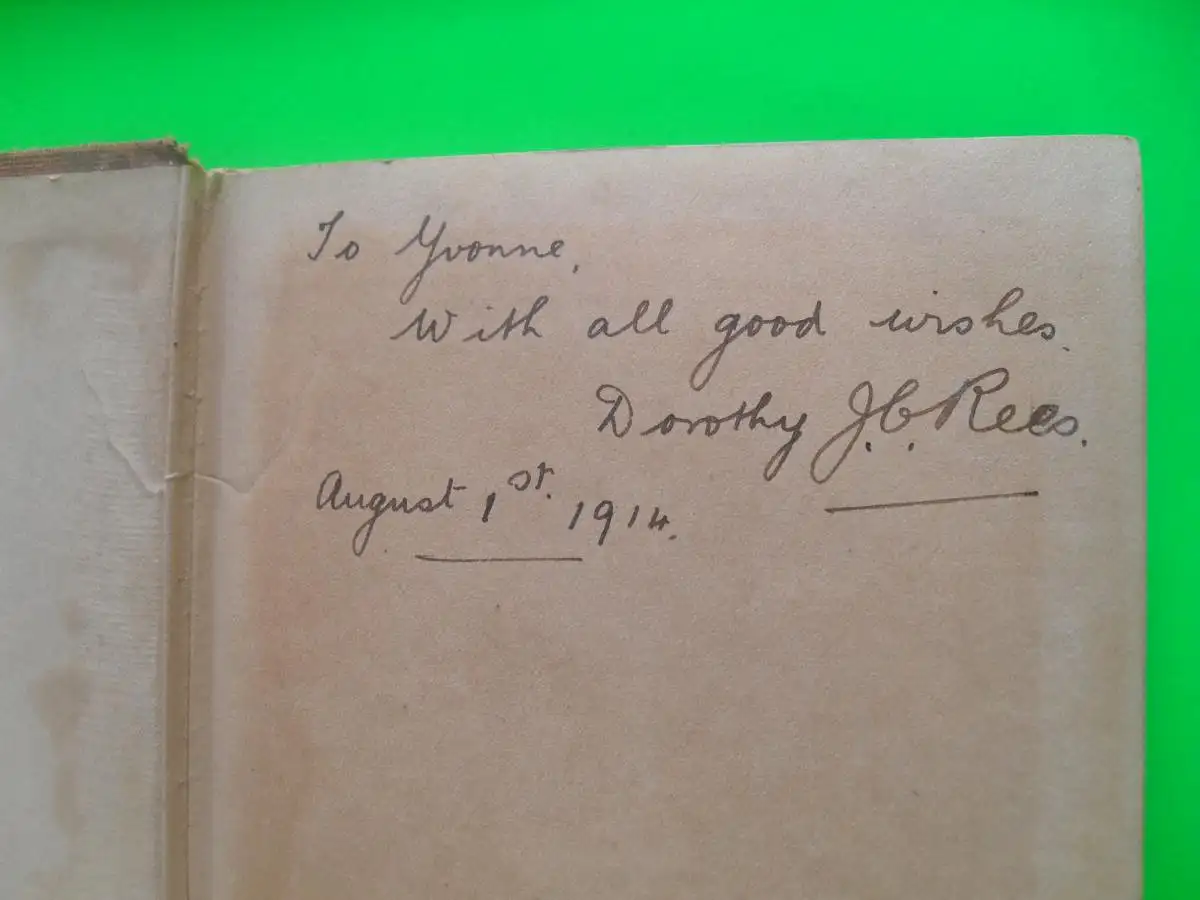 To Yvonne,
With all good wishes.
Dorothy J.C. Rees.
August 1st. 1914.